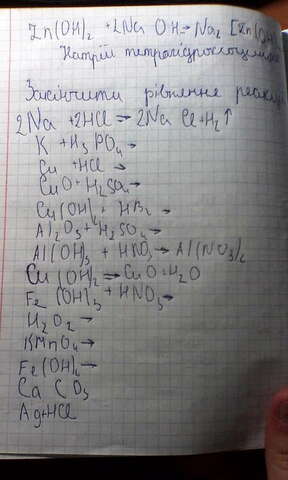 Zn(OH)₂ + 2Na OH → Na₂ [Zn(OH)
Натрій
Закінчити рівняння реакцій
2Na + 2HCl → 2Na Cl + H₂↑
K + H₃ PO₄ →
Cu + HCl →
CuO + H₂SO₄ →
Cu(OH)₂ + HBr →
Al₂O₃ + H₂SO₄ →
Al(OH)₃ + HNO₃ → Al(NO₃)₂
Cu (OH)₂ → CuO + H₂O
Fe (OH)₃ + HNO₃ →
H₂O₂ →
KMnO₄ →
Fe(OH)₂ →
Ca CO₃
Ag + HCl